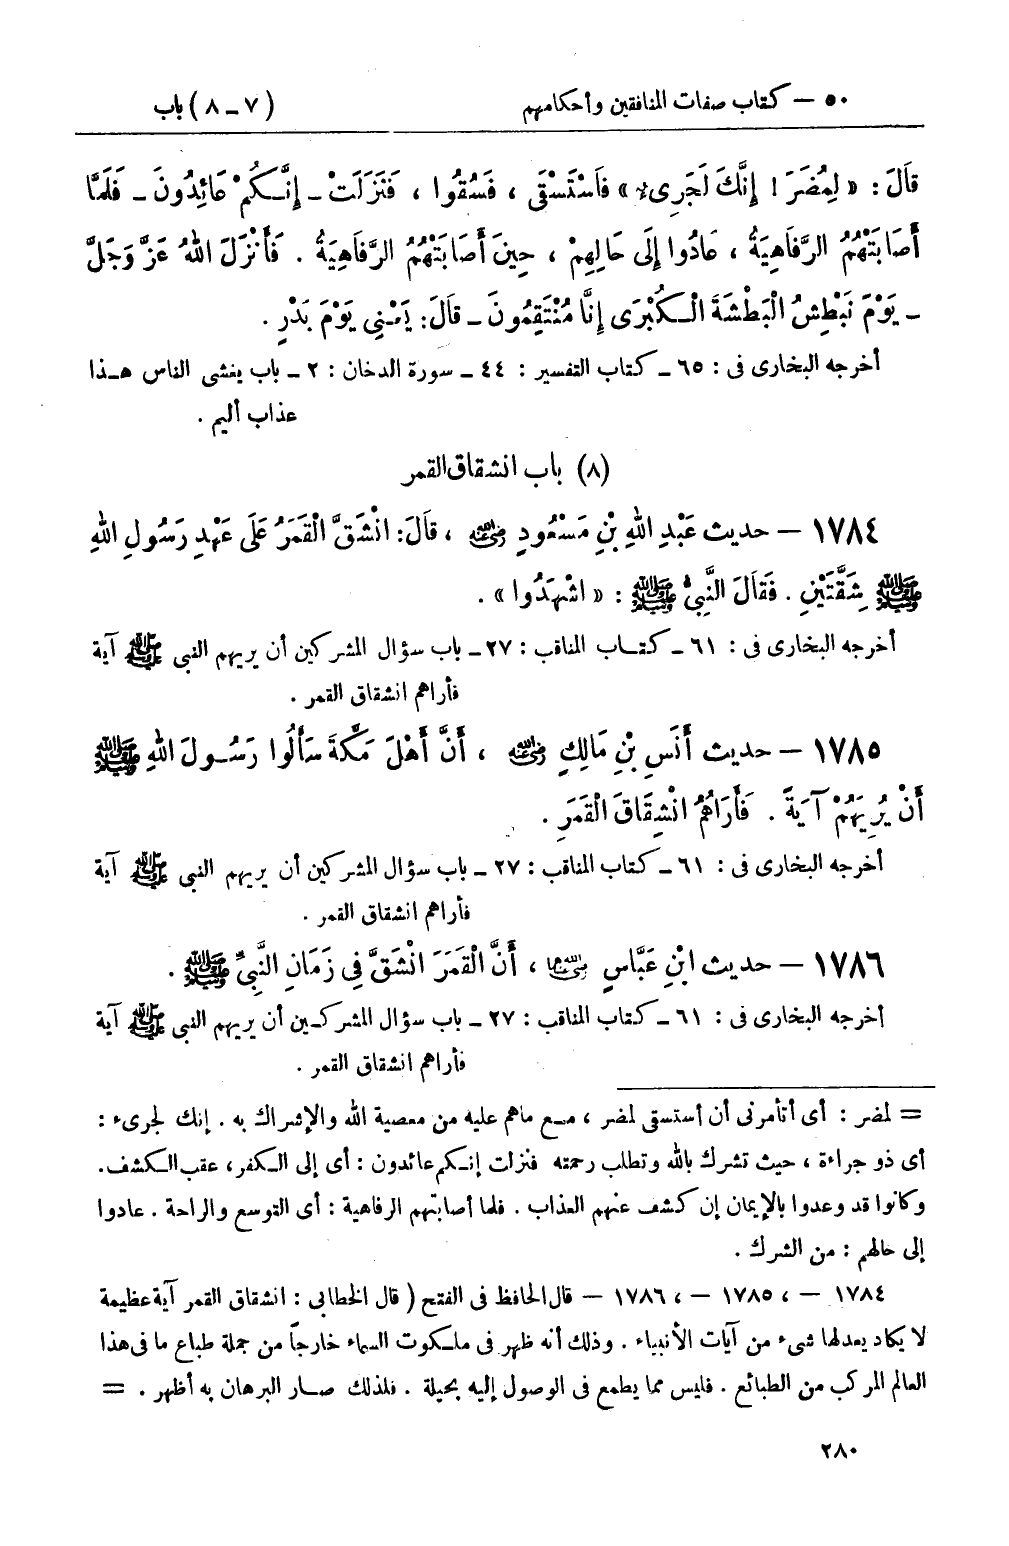 ٥٠ – كتاب صفات المنافقين وأحكامهم (٧ – ٨) باب
قَالَ : « لِمُضَرَ ! إِنَّكَ لَجَرِىءٌ » فَاسْتَسْقَى ، فَسُقُوا ، فَنَزَلَتْ – إِنَّكُمْ عَائِدُونَ – فَلَمَّا
أَصَابَتْهُمُ الرَّفَاهِيَةُ ، عَادُوا إِلَى حَالِهِمْ ، حِينَ أَصَابَتْهُمُ الرَّفَاهِيَةُ . فَأَنْزَلَ اللهُ عَزَّ وَجَلَّ
– يَوْمَ نَبْطِشُ الْبَطْشَةَ الْكُبْرَى إِنَّا مُنْتَقِمُونَ – قَالَ : يَعْنِي يَوْمَ بَدْرٍ .
أخرجه البخارى فى : ٦٥ – كتاب التفسير : ٤٤ – سورة الدخان : ٢ – باب يغشى الناس هذا
عذاب أليم .
(٨) باب انشقاق القمر
١٧٨٤ – حديث عَبْدِ اللهِ بْنِ مَسْعُودٍ رضي الله عنه ، قَالَ : انْشَقَّ الْقَمَرُ عَلَى عَهْدِ رَسُولِ اللهِ
ﷺ شِقَّتَيْنِ . فَقَالَ النَّبِيُّ ﷺ : « اشْهَدُوا » .
أخرجه البخارى فى : ٦١ – كتاب المناقب : ٢٧ – باب سؤال المشركين أن يريهم النبى ﷺ آية
فأراهم انشقاق القمر .
١٧٨٥ – حديث أَنَسِ بْنِ مَالِكٍ رضي الله عنه ، أَنَّ أَهْلَ مَكَّةَ سَأَلُوا رَسُولَ اللهِ ﷺ
أَنْ يُرِيَهُمْ آيَةً . فَأَرَاهُمُ انْشِقَاقَ الْقَمَرِ .
أخرجه البخارى فى : ٦١ – كتاب المناقب : ٢٧ – باب سؤال المشركين أن يريهم النبى ﷺ آية
فأراهم انشقاق القمر .
١٧٨٦ – حديث ابْنِ عَبَّاسٍ رضي الله عنهما ، أَنَّ الْقَمَرَ انْشَقَّ فِي زَمَانِ النَّبِيِّ ﷺ .
أخرجه البخارى فى : ٦١ – كتاب المناقب : ٢٧ – باب سؤال المشركين أن يريهم النبى ﷺ آية
فأراهم انشقاق القمر .
= لمضر : أى أتأمرنى أن أستسقى لمضر ، مع ماهم عليه من معصية الله والإشراك به . إنك لجرىء :
أى ذو جراءة ، حيث تشرك بالله وتطلب رحمته فنزلت إنكم عائدون : أى إلى الكفر، عقب الكشف.
وكانوا قد وعدوا بالإيمان إن كشف عنهم العذاب . فلما أصابتهم الرفاهية : أى التوسع والراحة . عادوا
إلى حالهم : من الشرك .
١٧٨٤ – ، ١٧٨٥ – ، ١٧٨٦ – قال الحافظ فى الفتح ( قال الخطابى : انشقاق القمر آية عظيمة
لا يكاد يعدلها شىء من آيات الأنبياء . وذلك أنه ظهر فى ملكوت السماء خارجاً من جملة طباع ما فى هذا
العالم المركب من الطبائع . فليس مما يطمع فى الوصول إليه بحيلة . فلذلك صار البرهان به أظهر . =
٢٨٠